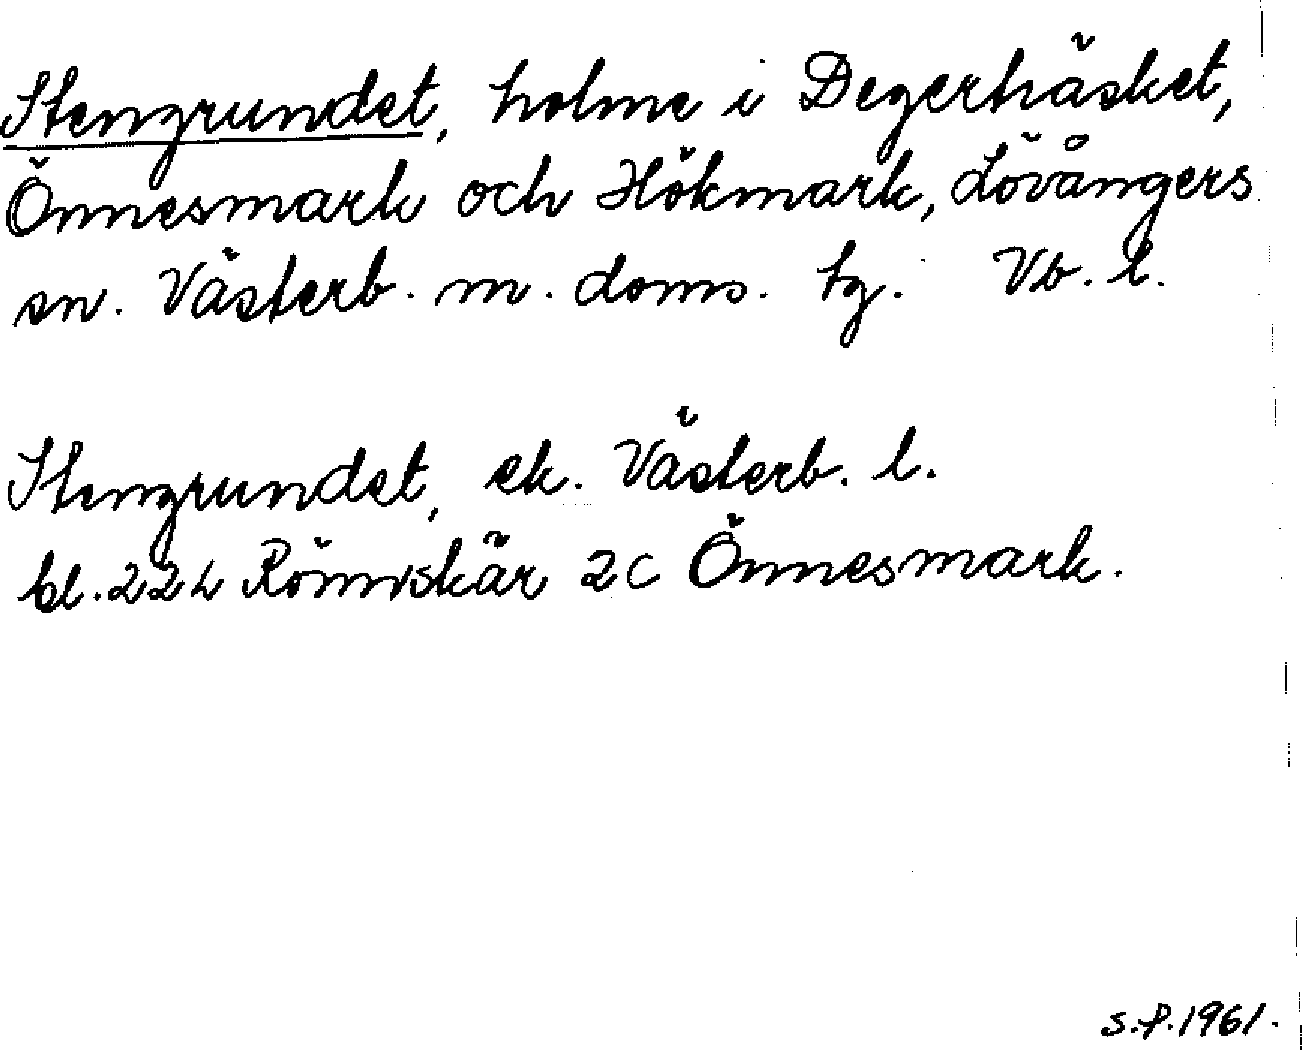 Stengrundet, holme i Degerträsket,
Önnesmark och Hökmark, Lövångers
sn. Västerb. m. doms. tg. Vb. l.
Stengrundet, ek. Västerb. l.
bl. 22 L Rönnskär 2 C Önnesmark.
S.P. 1961.